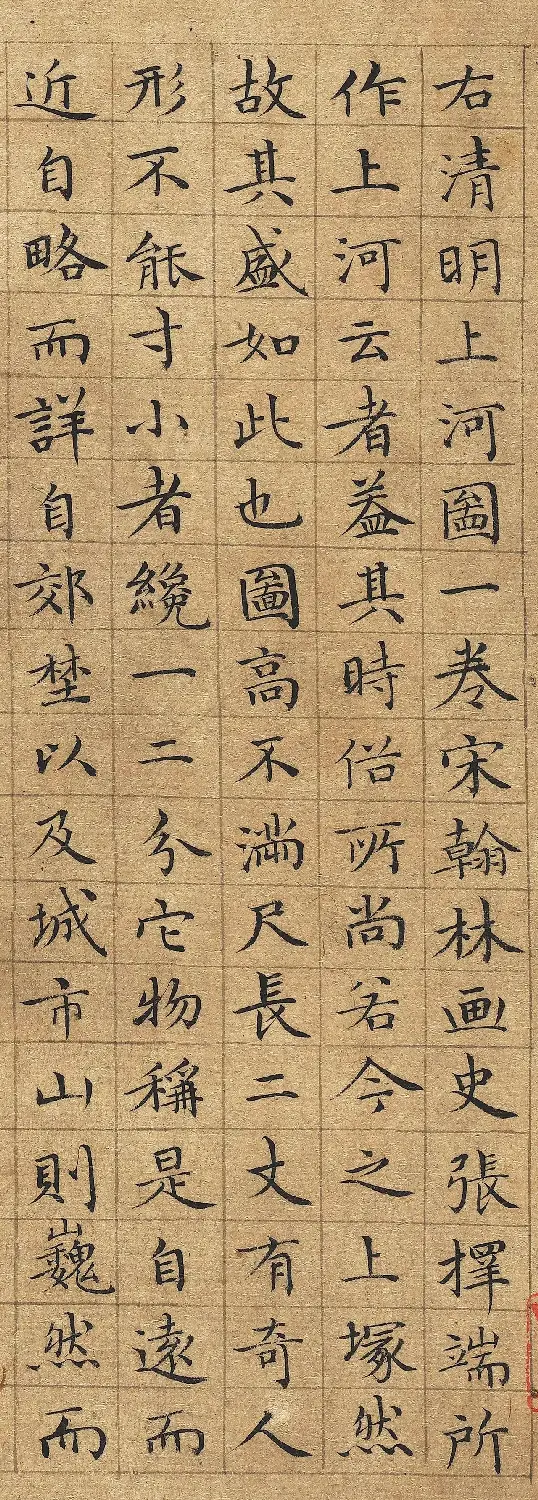 右清明上河圖一卷宋翰林画史張擇端所
作上河云者葢其時俗所尚若今之上塚然
故其盛如此也圖高不满尺長二丈有奇人
形不能寸小者纔一二分它物稱是自遠而
近自略而詳自郊埜以及城市山則巍然而